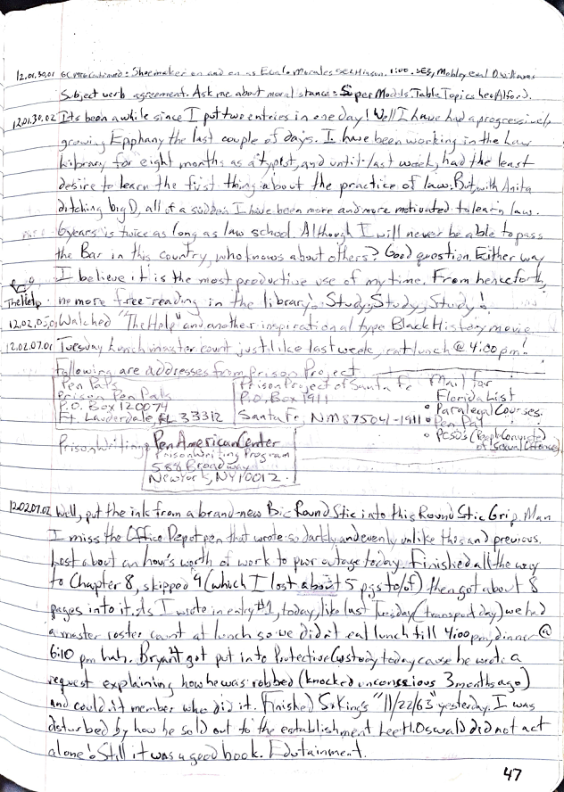 12.01.30.01 GC Mtg Continued: Shoemaker on and on as 1:00. SES, Mobley, Earl D. Williams
Subject verb agreement. Ask me about moral stances: Super Models. Table Topics: Leo Alford.
12.01.30.02 Its been a while since I put two entries in one day! Well I have had a progressively
growing Epphany the last couple of days. I have been working in the Law
Library for eight months as a typist, and until last week, had the least
desire to learn the first thing about the practice of law. But, with Anita
ditching big D, all of a sudden I have been more and more motivated to learn law.
6 years is twice as long as law school. Although I will never be able to pass
the Bar in this country, who knows about others? Good question. Either way
I believe it is the most productive use of my time. From henceforth,
The Help no more free-reading in the library. Study, Study, Study!
12.02.05.01 Watched "The Help" and another inspirational type Black History movie.
12.02.07.01 Tuesday Lunch master count just like last week, eat lunch @ 4:00 pm!
Following are addresses from Prison Project
Pen Pals
Prison Pen Pals
P.O. Box 120074
Ft. Lauderdale, FL 33312
Prison Project of Santa Fe
P.O. Box 1911
Santa Fe, NM 87504-1911
Mail for
Florida List
• Paralegal Courses.
• Pen Pal
• PCSOs (People Convicted
of Sexual Offenses)
Prison Writing: Pen American Center
Prison Writing Program
588 Broadway
New York, NY 10012.
12.02.07.02 Well, put the ink from a brand-new Bic Round Stic into this Round Stic Grip. Man
I miss the Office Depot pen that wrote so darkly and evenly unlike this and previous.
Lost about an hour's worth of work to pwr outage today. Finished all the way
to Chapter 8, skipped 9 (which I lost about 5 pgs to/of) then got about 8
pages into it. As I wrote in entry #1, today, like last Tuesday (transport day) we had
a master roster count at lunch so we didn't eat lunch till 4:00 pm, dinner @
6:10 pm huh. Bryant got put into Protective Custody today cause he wrote a
request explaining how he was robbed (knocked unconscious 3 months ago)
and couldn't member who did it. Finished S. King's "11/22/63" yesterday. I was
disturbed by how he sold out to the establishment. Lee H. Oswald did not act
alone! Still it was a good book. Edutainment.
47